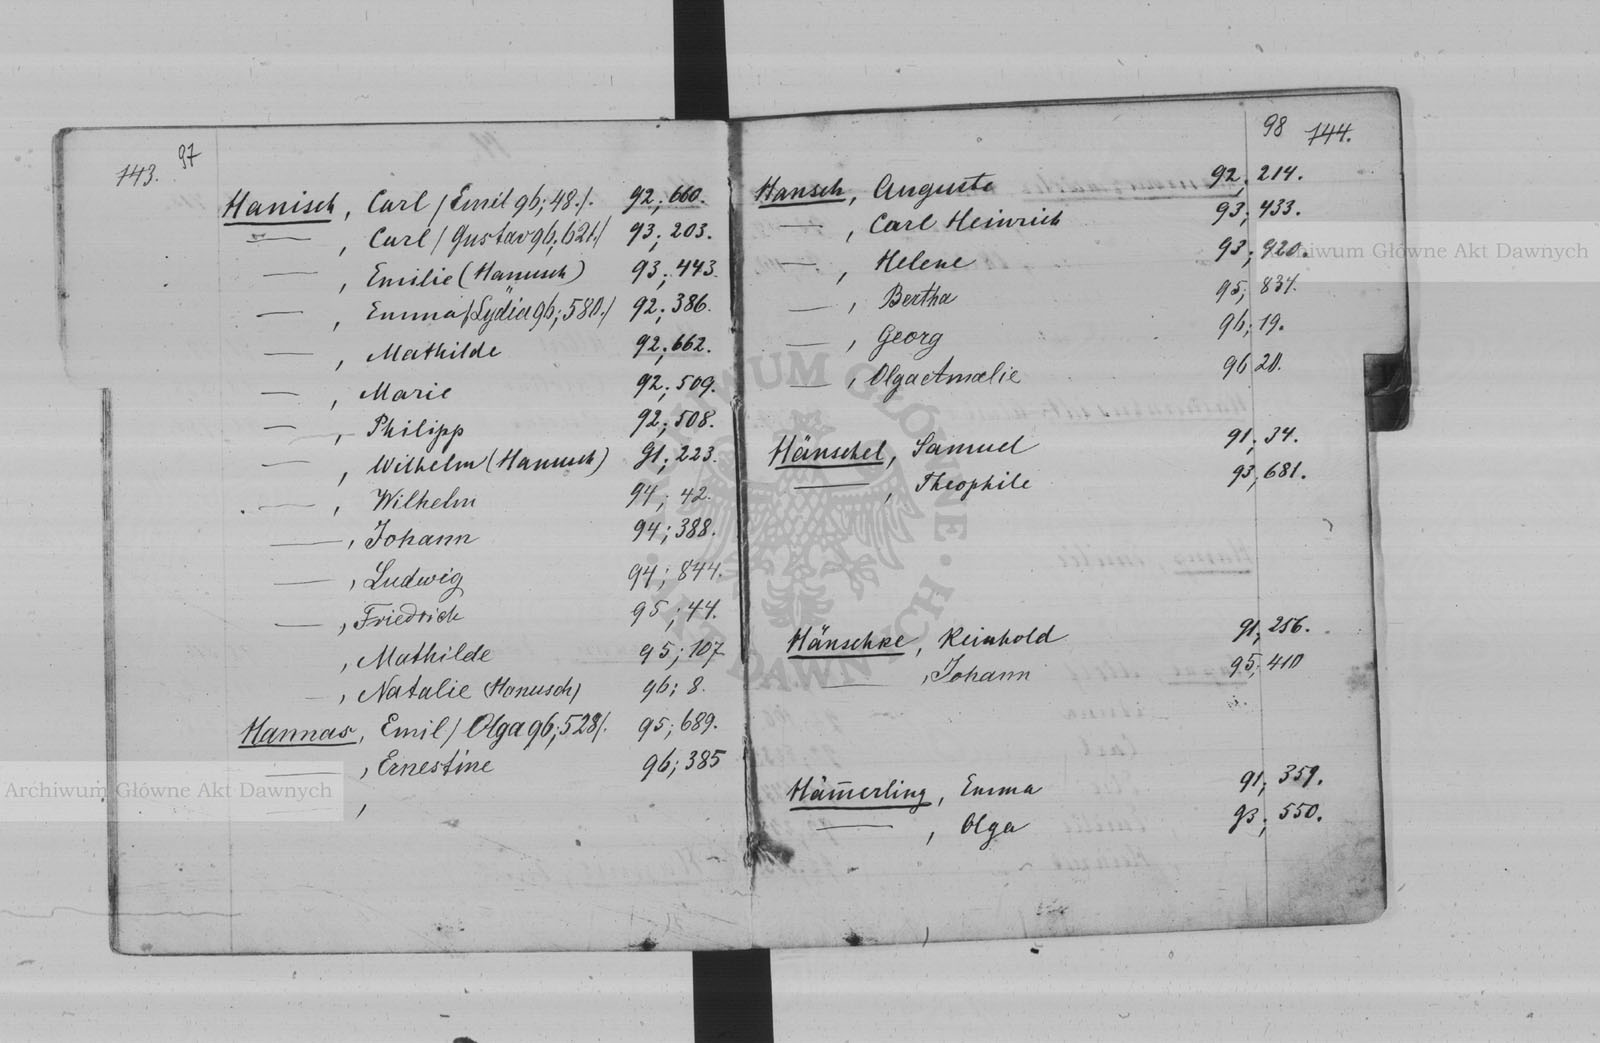 143. 97
Hanisch, Carl /Emil 96; 48./. 92; 660.
—, Carl /Gustav 96; 621/ 93; 203.
—, Emilie (Hanusch) 93; 443.
—, Emma /Lydia 96; 580./ 92; 386.
—, Mathilde 92; 662.
—, Marie 92; 509.
—, Philipp 92; 508.
—, Wilhelm (Hanusch) 91; 223.
—, Wilhelm 94; 42.
—, Johann 94; 388.
—, Ludwig 94; 844.
—, Friedrich 95; 44.
, Mathilde 95; 107
—, Natalie (Hanusch) 96; 8.
Hannas, Emil / Olga 96; 528/. 95; 689.
—, Ernestine 96; 385
—,
98 144.
Hansch, Auguste 92; 214.
—, Carl Heinrich 93; 433.
—, Helene 93; 920.
—, Bertha 95; 834.
—, Georg 96; 19.
—, Olga Amalie 96 20.
Hänschel, Samuel 91; 34.
—, Theophile 93; 681.
Hänschke, Reinhold 91; 256.
—, Johann 95; 410
Häm̅erling, Emma 91; 359.
—, Olga 93; 550.
Archiwum Główne Akt Dawnych
Archiwum Główne Akt Dawnych
ARCHIWUM GŁÓWNE · AKT DAWNYCH ·